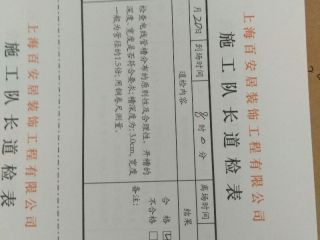 上海百安居装饰工程有限公司
施工队长道检表
月20日
到场时间
8时0分
离场时间
道检内容
结果
检查电线管槽分布的原则性及合理性，开槽的
深度、宽度是否符合要求；槽深度为：3.0cm，宽度
一般为管径的1.5倍；用钢卷尺测量。
合格
不合格
备注：
上海百安居装饰工程有限公司
施工队长道检表